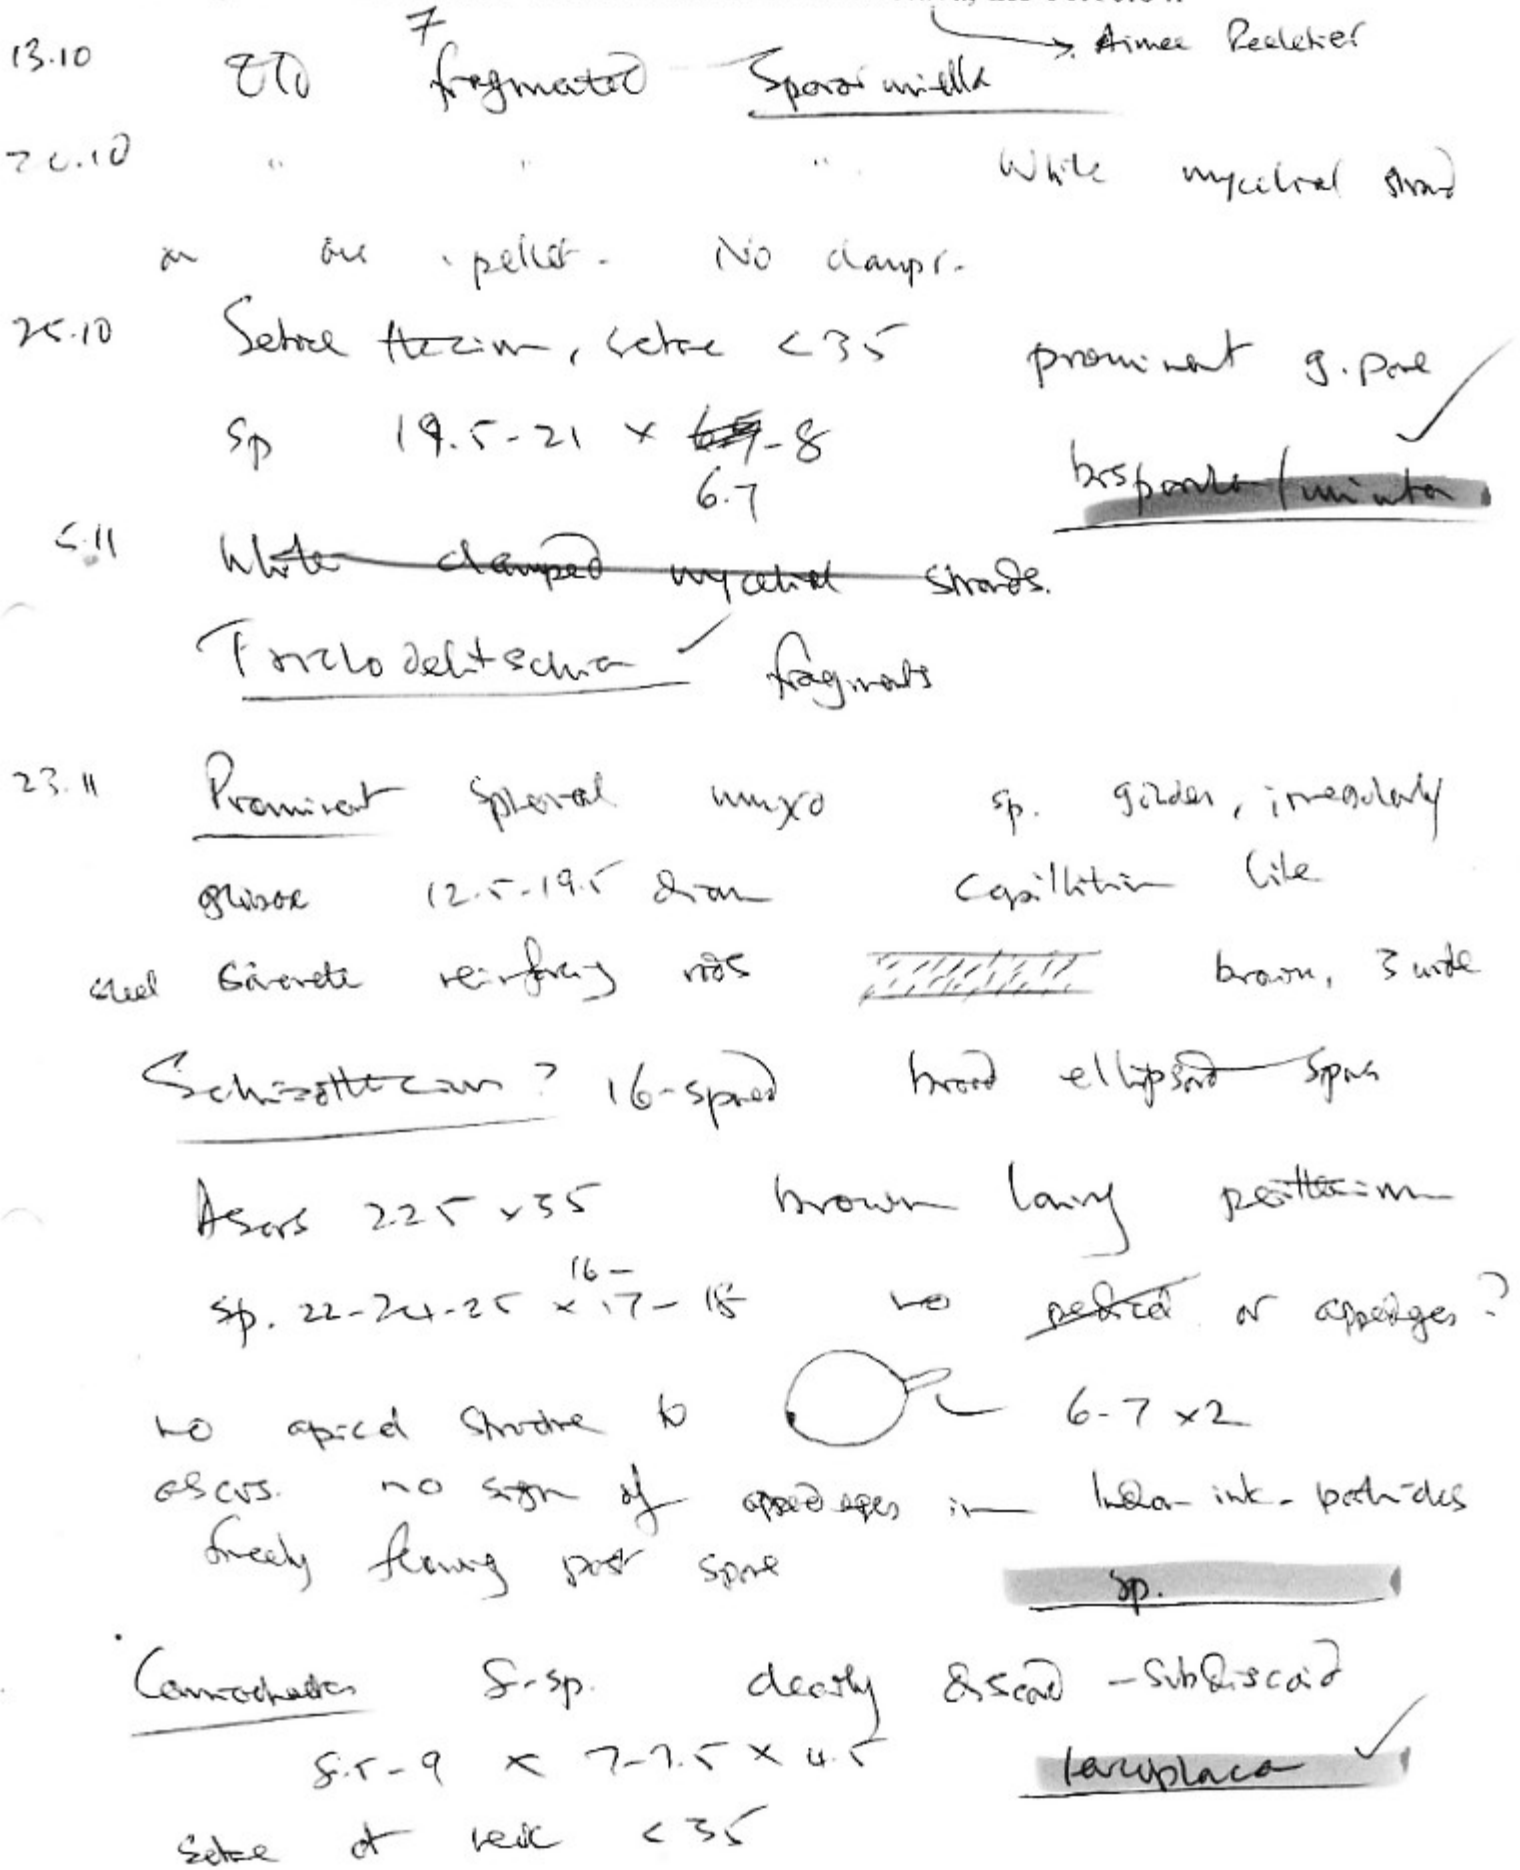 → Aimee Pelletier
13.10 OTD 7 fragmented Sporormiella
20.10 " " " White mycelial strand
on one pellet. No clamps.
25.10 Setose thecium, setae <35 prominent g. pore ✓
sp 19.5-21 × 6.7-8
bispora/minuta
5.11 White clamped mycelial strands.
Trichodelitschia ✓ fragments
23.11 Prominent spherical myxo sp. golden, irregularly
globose 12.5-19.5 diam capillitium like
steel concrete reinforcing rods brown, 3 wide
Schizothecium? 16-spored broad ellipsoid spores
Ascus 225 × 35 brown hairy perithecium
sp. 22-24-25 × 16-17-18 no pedicel or appendages?
no apical structure to 6-7 × 2
ascus. no sign of appendages in Indian ink - particles
freely flowing past spore
sp.
Coniochaeta 8-sp. clearly discoid - subdiscoid
8.5-9 × 7-7.5 × 4.5 ✓
setae at neck <35